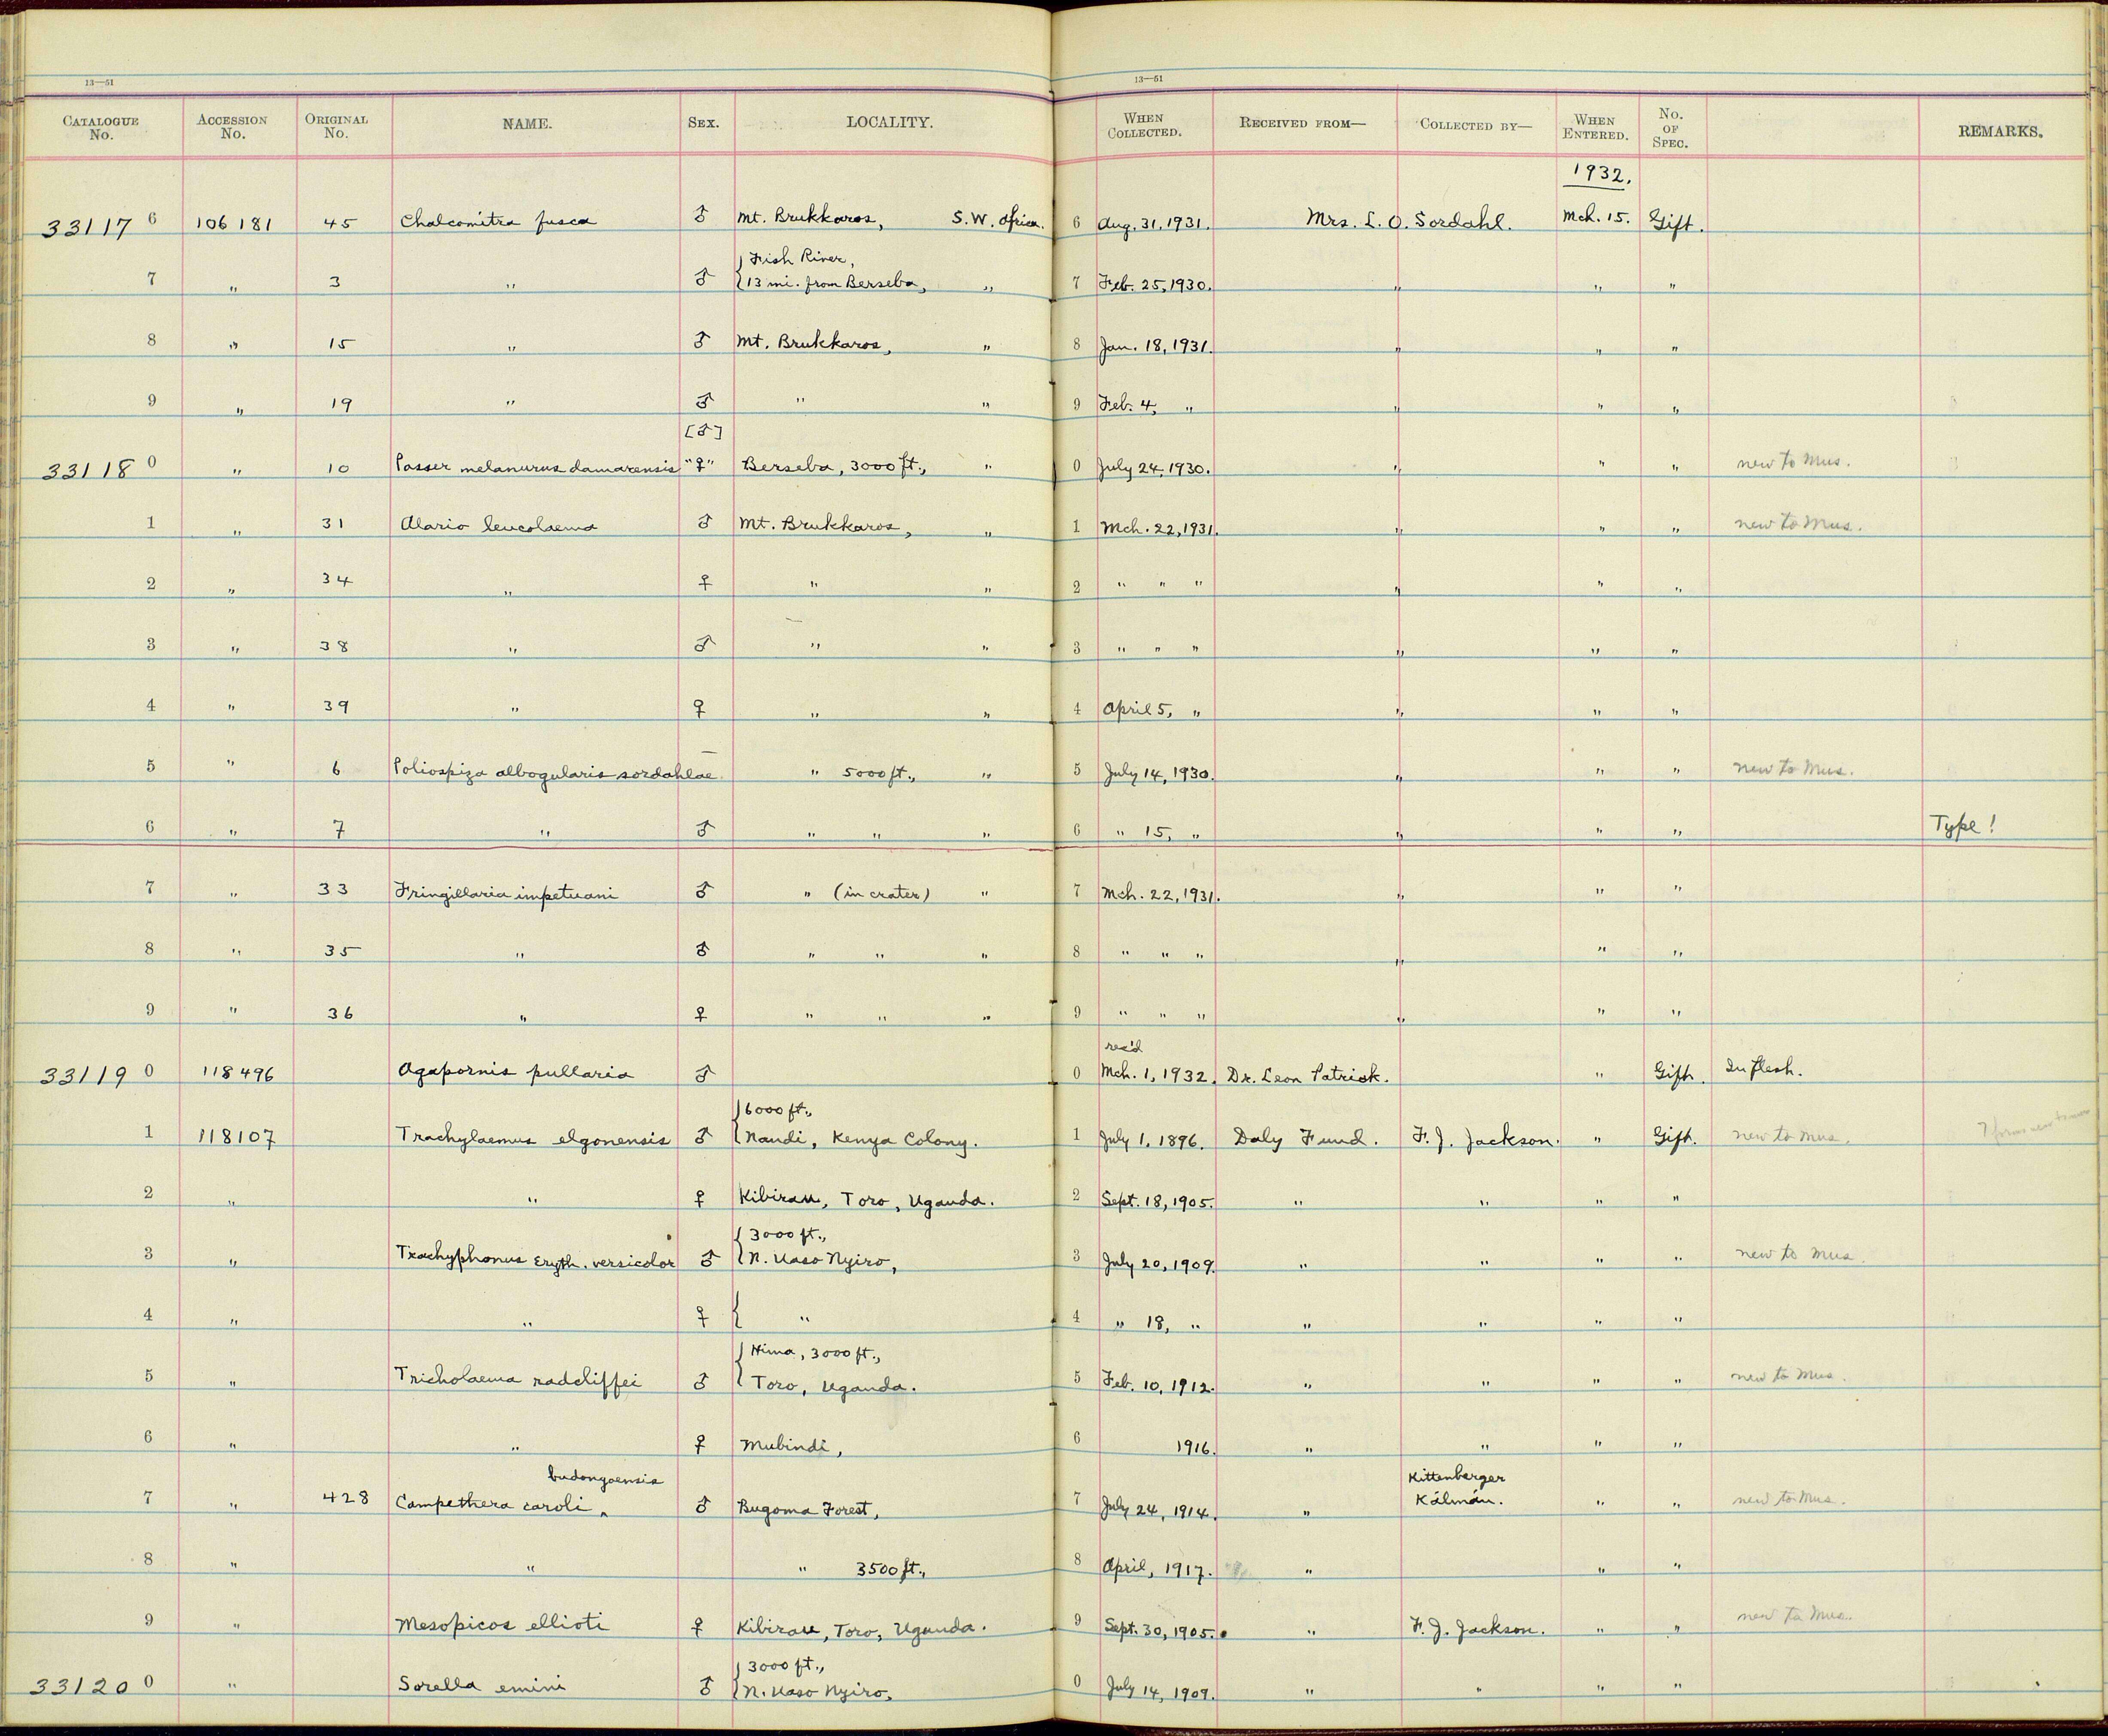 13—51 13—51
CATALOGUE No. ACCESSION No. ORIGINAL No. NAME. SEX. LOCALITY. WHEN COLLECTED. RECEIVED FROM— COLLECTED BY— WHEN ENTERED. No. OF SPEC. REMARKS.
1932.
33117 6 106181 45 Chalcomitra fusca ♂ Mt. Brukkaros, S.W. Africa. 6 Aug. 31, 1931. Mrs. L. O. Sordahl. Mch. 15. Gift.
7 " 3 " ♂ { Fish River,
13 mi. from Berseba, " 7 Feb. 25, 1930. " " "
8 " 15 " ♂ Mt. Brukkaros, " 8 Jan. 18, 1931. " " "
9 " 19 " ♂ " " 9 Feb. 4, " " " "
[♂]
33118 0 " 10 Passer melanurus damarensis "♀" Berseba, 3000 ft., " 0 July 24, 1930. " " " new to Mus.
1 " 31 Alario leucolaema ♂ Mt. Brukkaros, " 1 Mch. 22, 1931. " " " new to Mus.
2 " 34 " ♀ " " 2 " " " " " "
3 " 38 " ♂ " " 3 " " " " " "
4 " 39 " ♀ " " 4 April 5, " " " "
5 " 6 Poliospiza albogularis sordahlae — " 5000 ft., " 5 July 14, 1930. " " " new to Mus.
6 " 7 " ♂ " " " 6 " 15, " " " " Type!
7 " 33 Fringillaria impetuani ♂ " (in crater) " 7 Mch. 22, 1931. " " "
8 " 35 " ♂ " " " 8 " " " " " "
9 " 36 " ♀ " " " 9 " " " " " "
rec'd
33119 0 118496 Agapornis pullaria ♂ 0 Mch. 1, 1932. Dr. Leon Patrick. " Gift. In flesh.
1 118107 Trachylaemus elgonensis ♂ { 6000 ft.,
Nandi, Kenya Colony. 1 July 1, 1896. Daly Fund. F. J. Jackson. " Gift. new to Mus.
2 " " ♀ Kibirau, Toro, Uganda. 2 Sept. 18, 1905. " " " "
3 " Trachyphonus Eryth. versicolor ♂ { 3000 ft.,
N. Uaso Nyiro, 3 July 20, 1909. " " " " new to Mus
4 " " ♀ { " 4 " 18, " " " " "
5 " Tricholaema radcliffei ♂ { Hima, 3000 ft.,
Toro, Uganda. 5 Feb. 10, 1912. " " " " new to Mus.
6 " " ♀ Mubindi, 6 1916. " " " "
budongoensis
7 " 428 Campethera caroli ‸ ♂ Bugoma Forest, 7 July 24, 1914. " Kittenberger Kálmán. " " new to Mus.
8 " " " 3500 ft., 8 April, 1917. " " "
9 " Mesopicos ellioti ♀ Kibirau, Toro, Uganda. 9 Sept. 30, 1905. " F. J. Jackson. " " new to Mus.
33120 0 " Sorella emini ♂ { 3000 ft.,
N. Uaso Nyiro, 0 July 14, 1909. " " " "